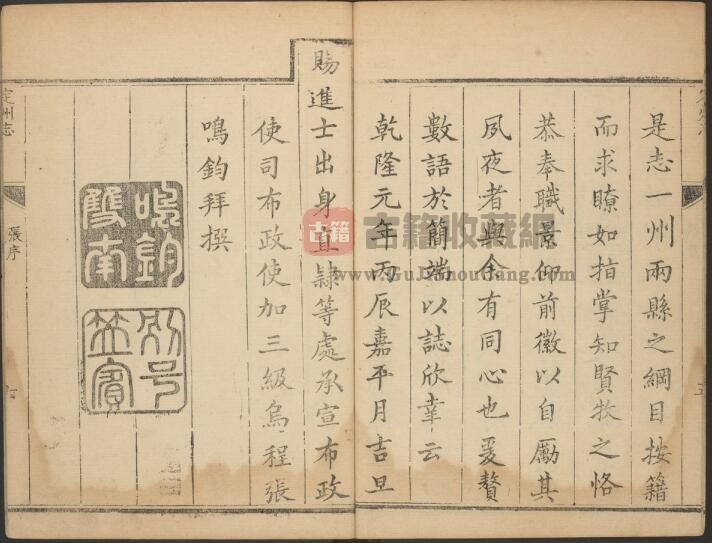 是志一州兩縣之綱目按籍
而求瞭如指掌知賢牧之恪
恭奉職景仰前徽以自勵其
夙夜者與余有同心也爰贅
數語於簡端以誌欣幸云
乾隆元年丙辰嘉平月吉旦
賜進士出身直隸等處承宣布政
使司布政使加三級烏程張
鳴鈞拜撰
鳴鈞
雙南
別号
笠賓
定州志
張序
古籍
古籍收藏網